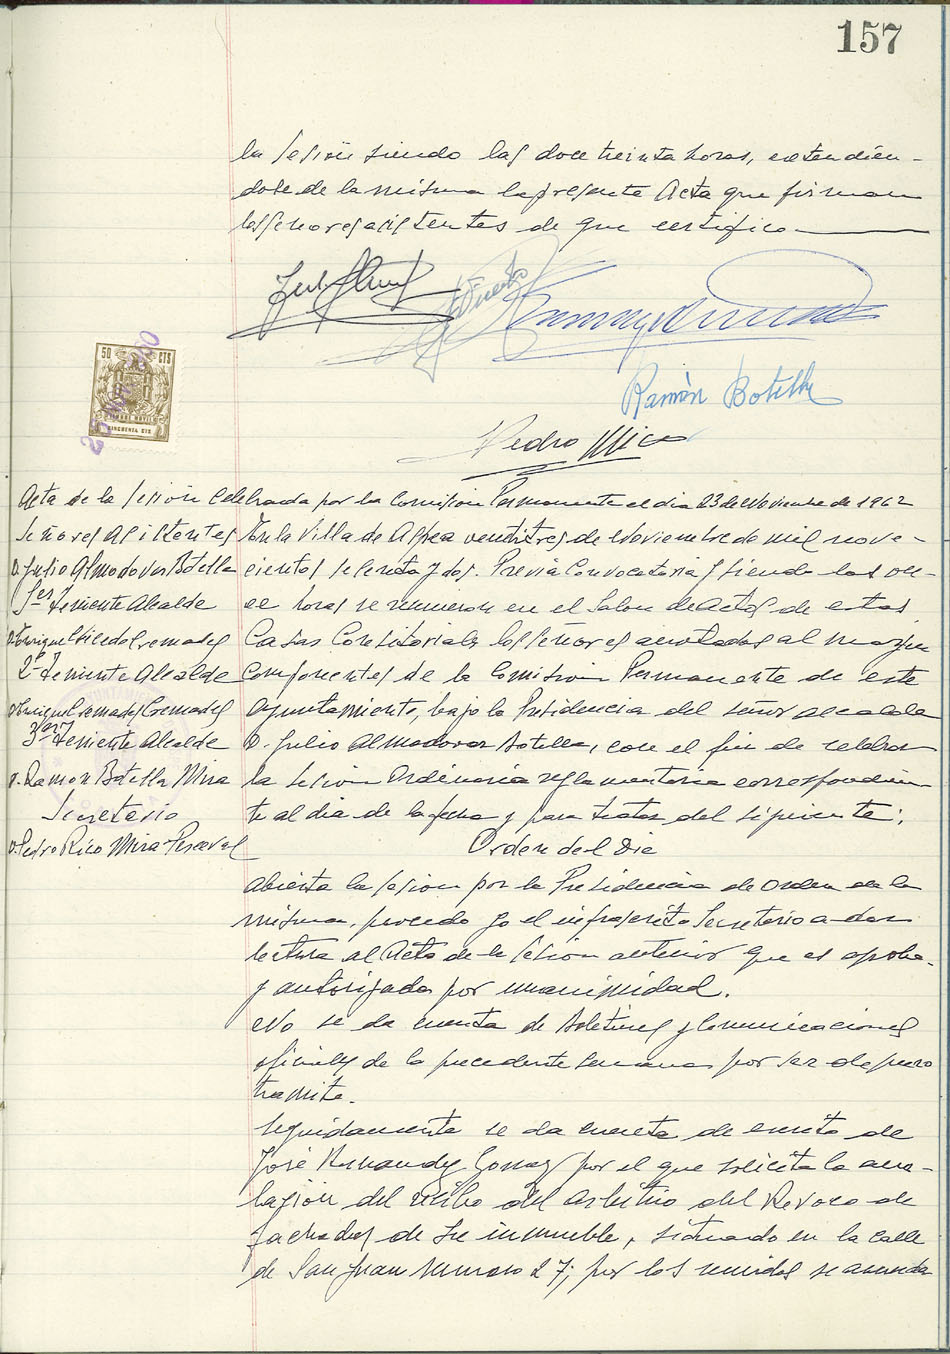 157
la sesión siendo las doce treinta horas, extendien-
dose de la misma la presente Acta que firman
los señores asistentes de que certifico
Ramón Botella
Pedro Rico
50 CTS
Acta de la sesión celebrada por la Comision Permanente el dia 23 de Noviembre de 1962
Señores Asistentes
D. Julio Almodovar Botella
1er Teniente Alcalde
2º Teniente Alcalde
D. Enrique Cremades Cremades
3er Teniente Alcalde
D. Ramon Botella Mira
Secretario
D. Pedro Rico Mira-Perceval
En la Villa de Aspea ventitres de Noviembre de mil nove-
cientos sesenta y dos. Previa Convocatoria y siendo las on-
ce horas se reunieron en el Salon de Actos de estas
Casas Consistoriales los señores anotados al margen
componentes de la Comision Permanente de este
Ayuntamiento, bajo la Presidencia del señor alcalde
D. Julio Almodovar Botella, con el fin de celebrar
la sesion Ordinaria reglamentaria correspondien-
te al dia de la fecha y para tratar del siguiente:
Orden del Dia
Abierta la sesion por la Presidencia de orden de la
misma, procedo yo el infrascrito Secretario a dar
lectura al Acta de la sesion anterior que es aproba-
y autorizada por unanimidad.
No se da cuenta de Boletines y Comunicaciones
oficiales de la precedente semana por ser de puro
tramite.
Seguidamente se da cuenta de escrito de
José Hernandez Gomez por el que solicita la anu-
lación del recibo del arbitrio del Revoco de
fachadas de su inmueble, situado en la calle
de San Juan numero 27; por los reunidos se acuerda